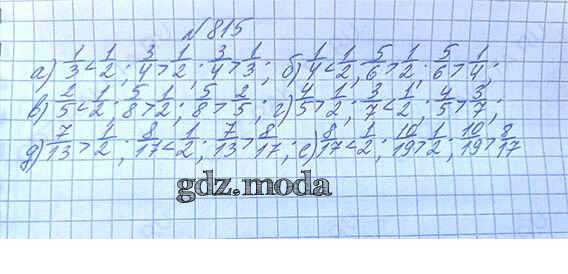 № 815
а) 1/3 < 1/2 ; 3/4 > 1/2 ; 3/4 > 1/3 ; б) 1/4 < 1/2 ; 5/6 > 1/2 ; 5/6 > 1/4 ;
в) 2/5 < 1/2 ; 5/8 > 1/2 ; 5/8 > 2/5 ; г) 4/5 > 1/2 ; 3/7 < 1/2 ; 4/5 > 3/7 ;
д) 7/13 > 1/2 ; 8/17 < 1/2 ; 7/13 > 8/17 ; е) 8/17 < 1/2 ; 10/19 > 1/2 ; 10/19 > 8/17
gdz.moda